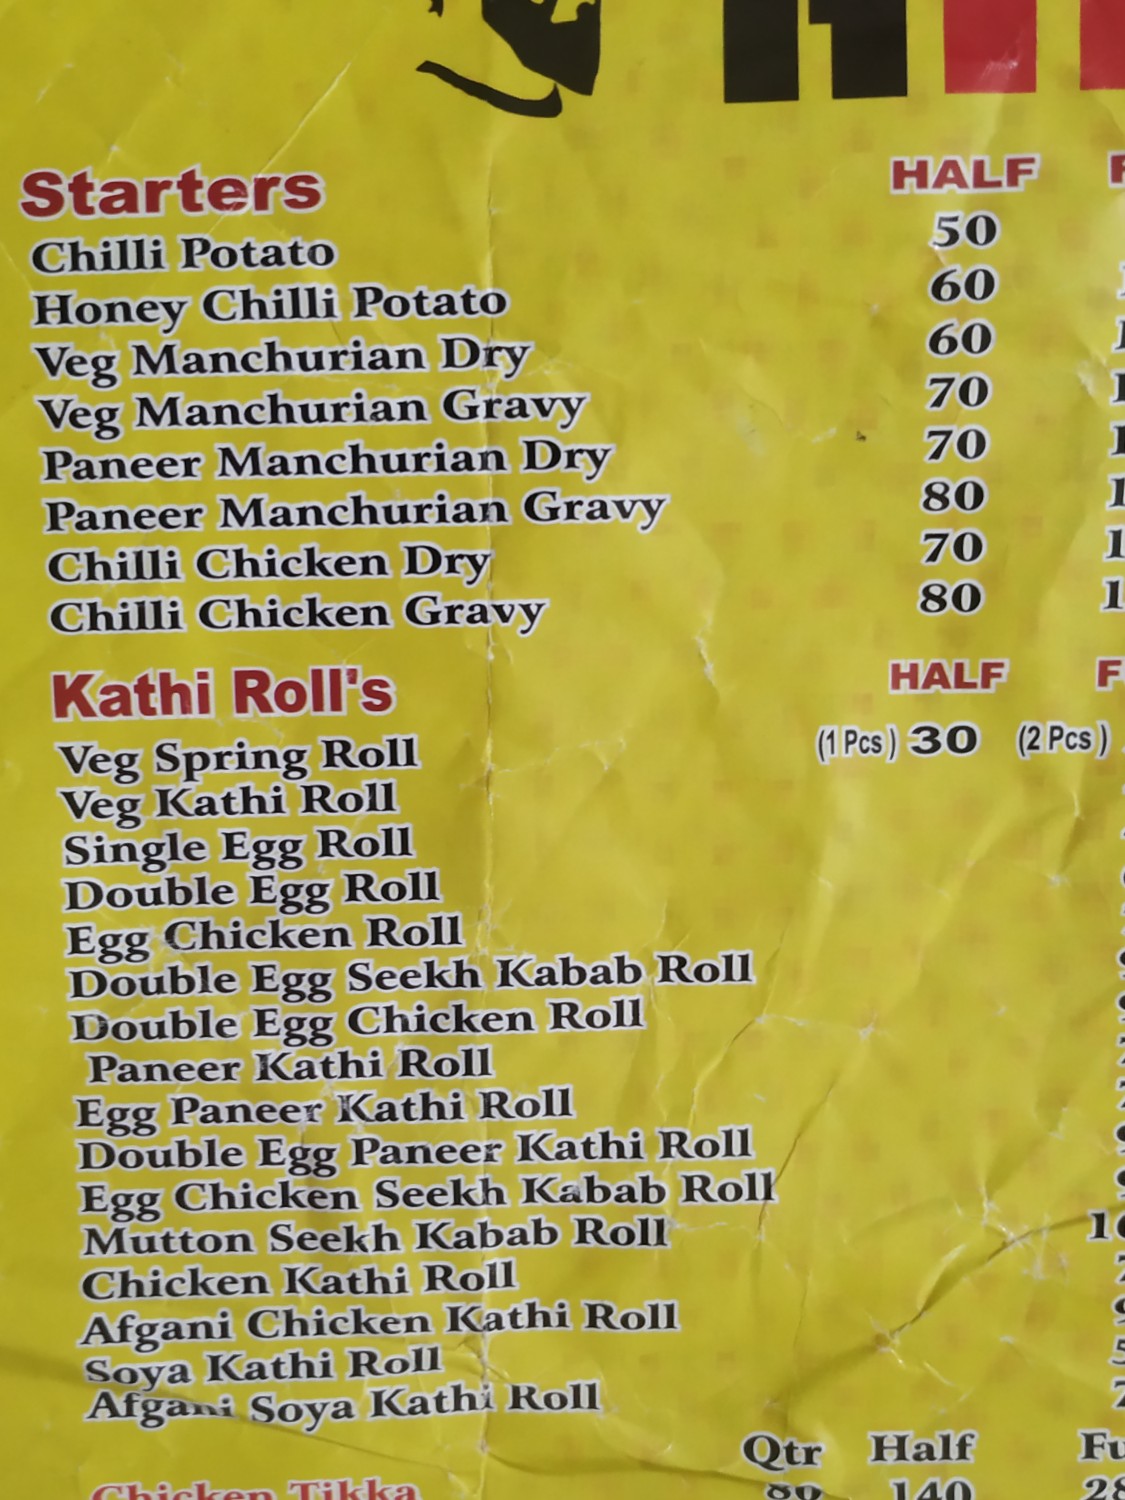 Starters HALF
Chilli Potato 50
Honey Chilli Potato 60
Veg Manchurian Dry 60
Veg Manchurian Gravy 70
Paneer Manchurian Dry 70
Paneer Manchurian Gravy 80
Chilli Chicken Dry 70
Chilli Chicken Gravy 80
Kathi Roll's HALF
Veg Spring Roll (1 Pcs) 30 (2 Pcs)
Veg Kathi Roll
Single Egg Roll
Double Egg Roll
Egg Chicken Roll
Double Egg Seekh Kabab Roll
Double Egg Chicken Roll
Paneer Kathi Roll
Egg Paneer Kathi Roll
Double Egg Paneer Kathi Roll
Egg Chicken Seekh Kabab Roll
Mutton Seekh Kabab Roll
Chicken Kathi Roll
Afgani Chicken Kathi Roll
Soya Kathi Roll
Afgani Soya Kathi Roll
Qtr Half
Chicken Tikka 80 140